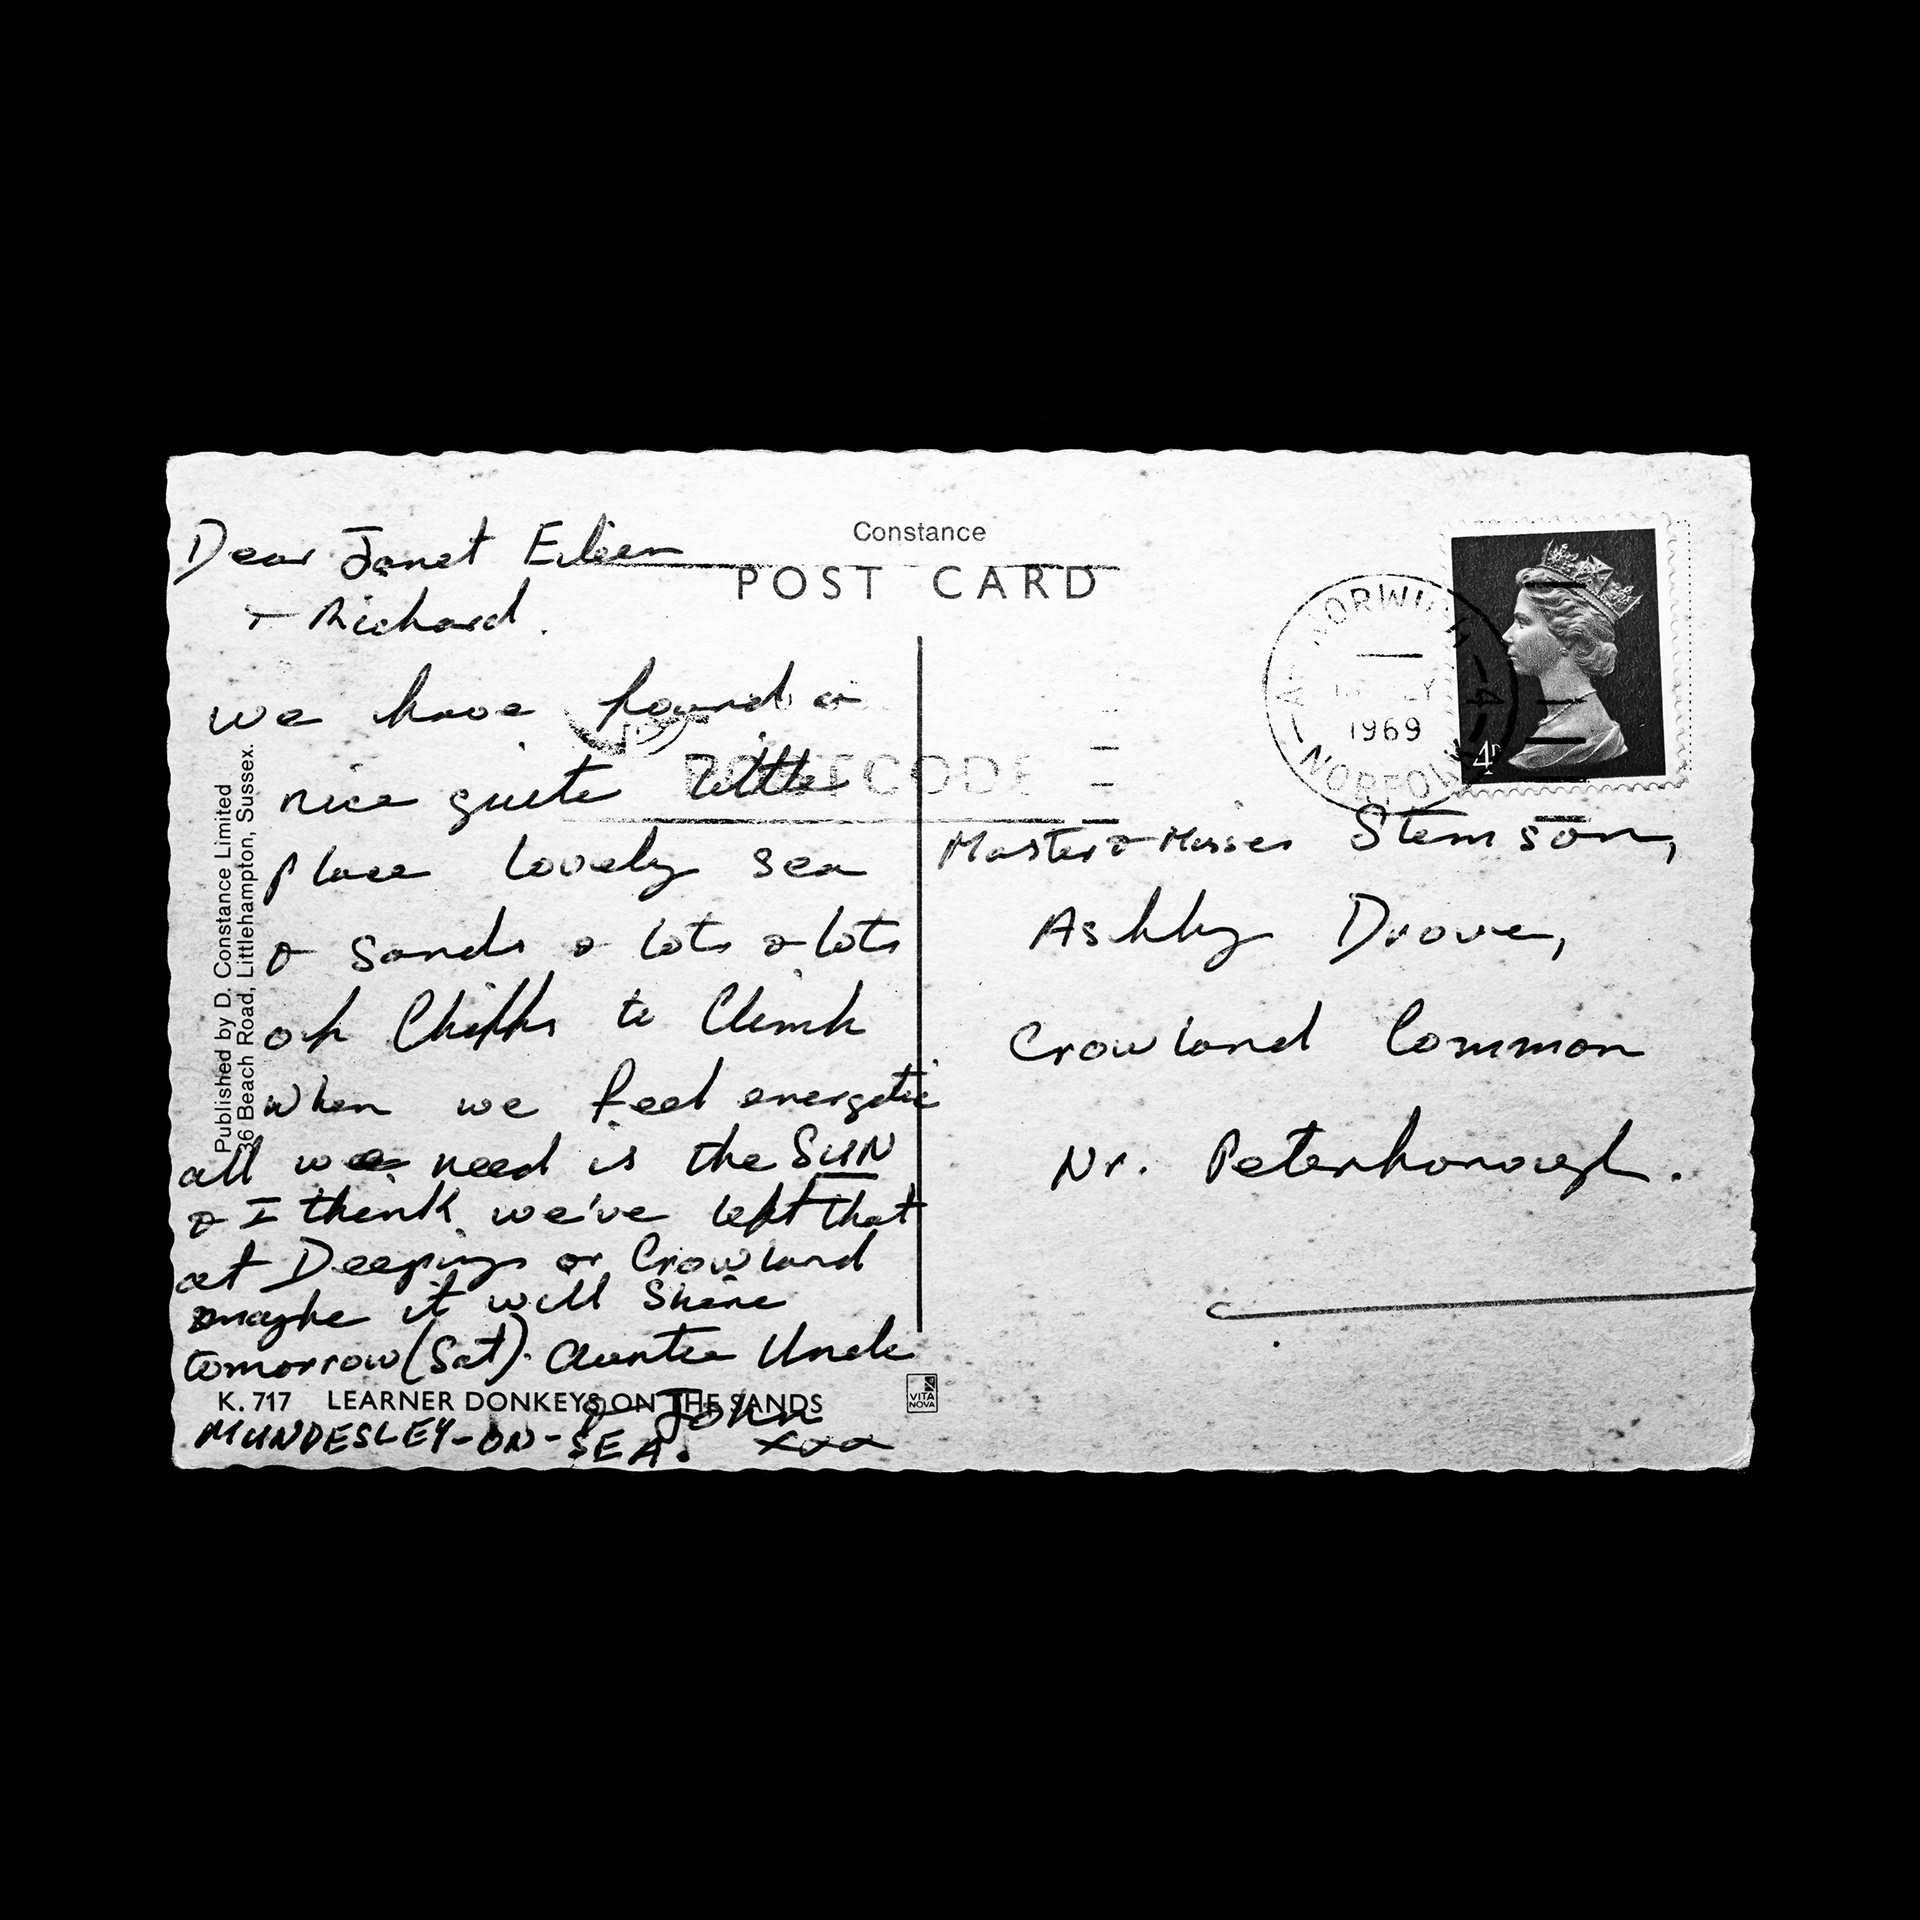 Dear Janet Eileen
& Richard.
we have found a
nice quite little
place lovely sea
& sands & lots & lots
of Cliffs to Climb
when we feel energetic
all we need is the SUN
& I think we've left that
at Deepings or Crowland
maybe it will shine
tomorrow (Sat). Auntie Uncle
& John
xxx
MUNDESLEY-ON-SEA.
K. 717 LEARNER DONKEYS ON THE SANDS
Published by D. Constance Limited
36 Beach Road, Littlehampton, Sussex.
Constance
POST CARD
POSTCODE
VITA
NOVA
NORWICH
1969
NORFOLK
4D
Master & Misses Stemson,
Ashby Drove,
Crowland Common
Nr. Peterborough.